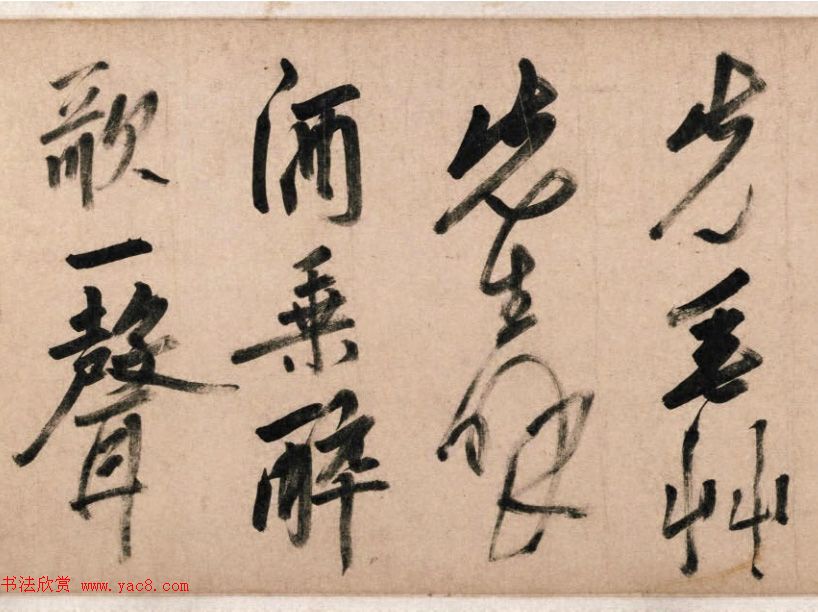 先艸
先生
酒乘醉
歌一聲
书法欣赏 www.yac8.com